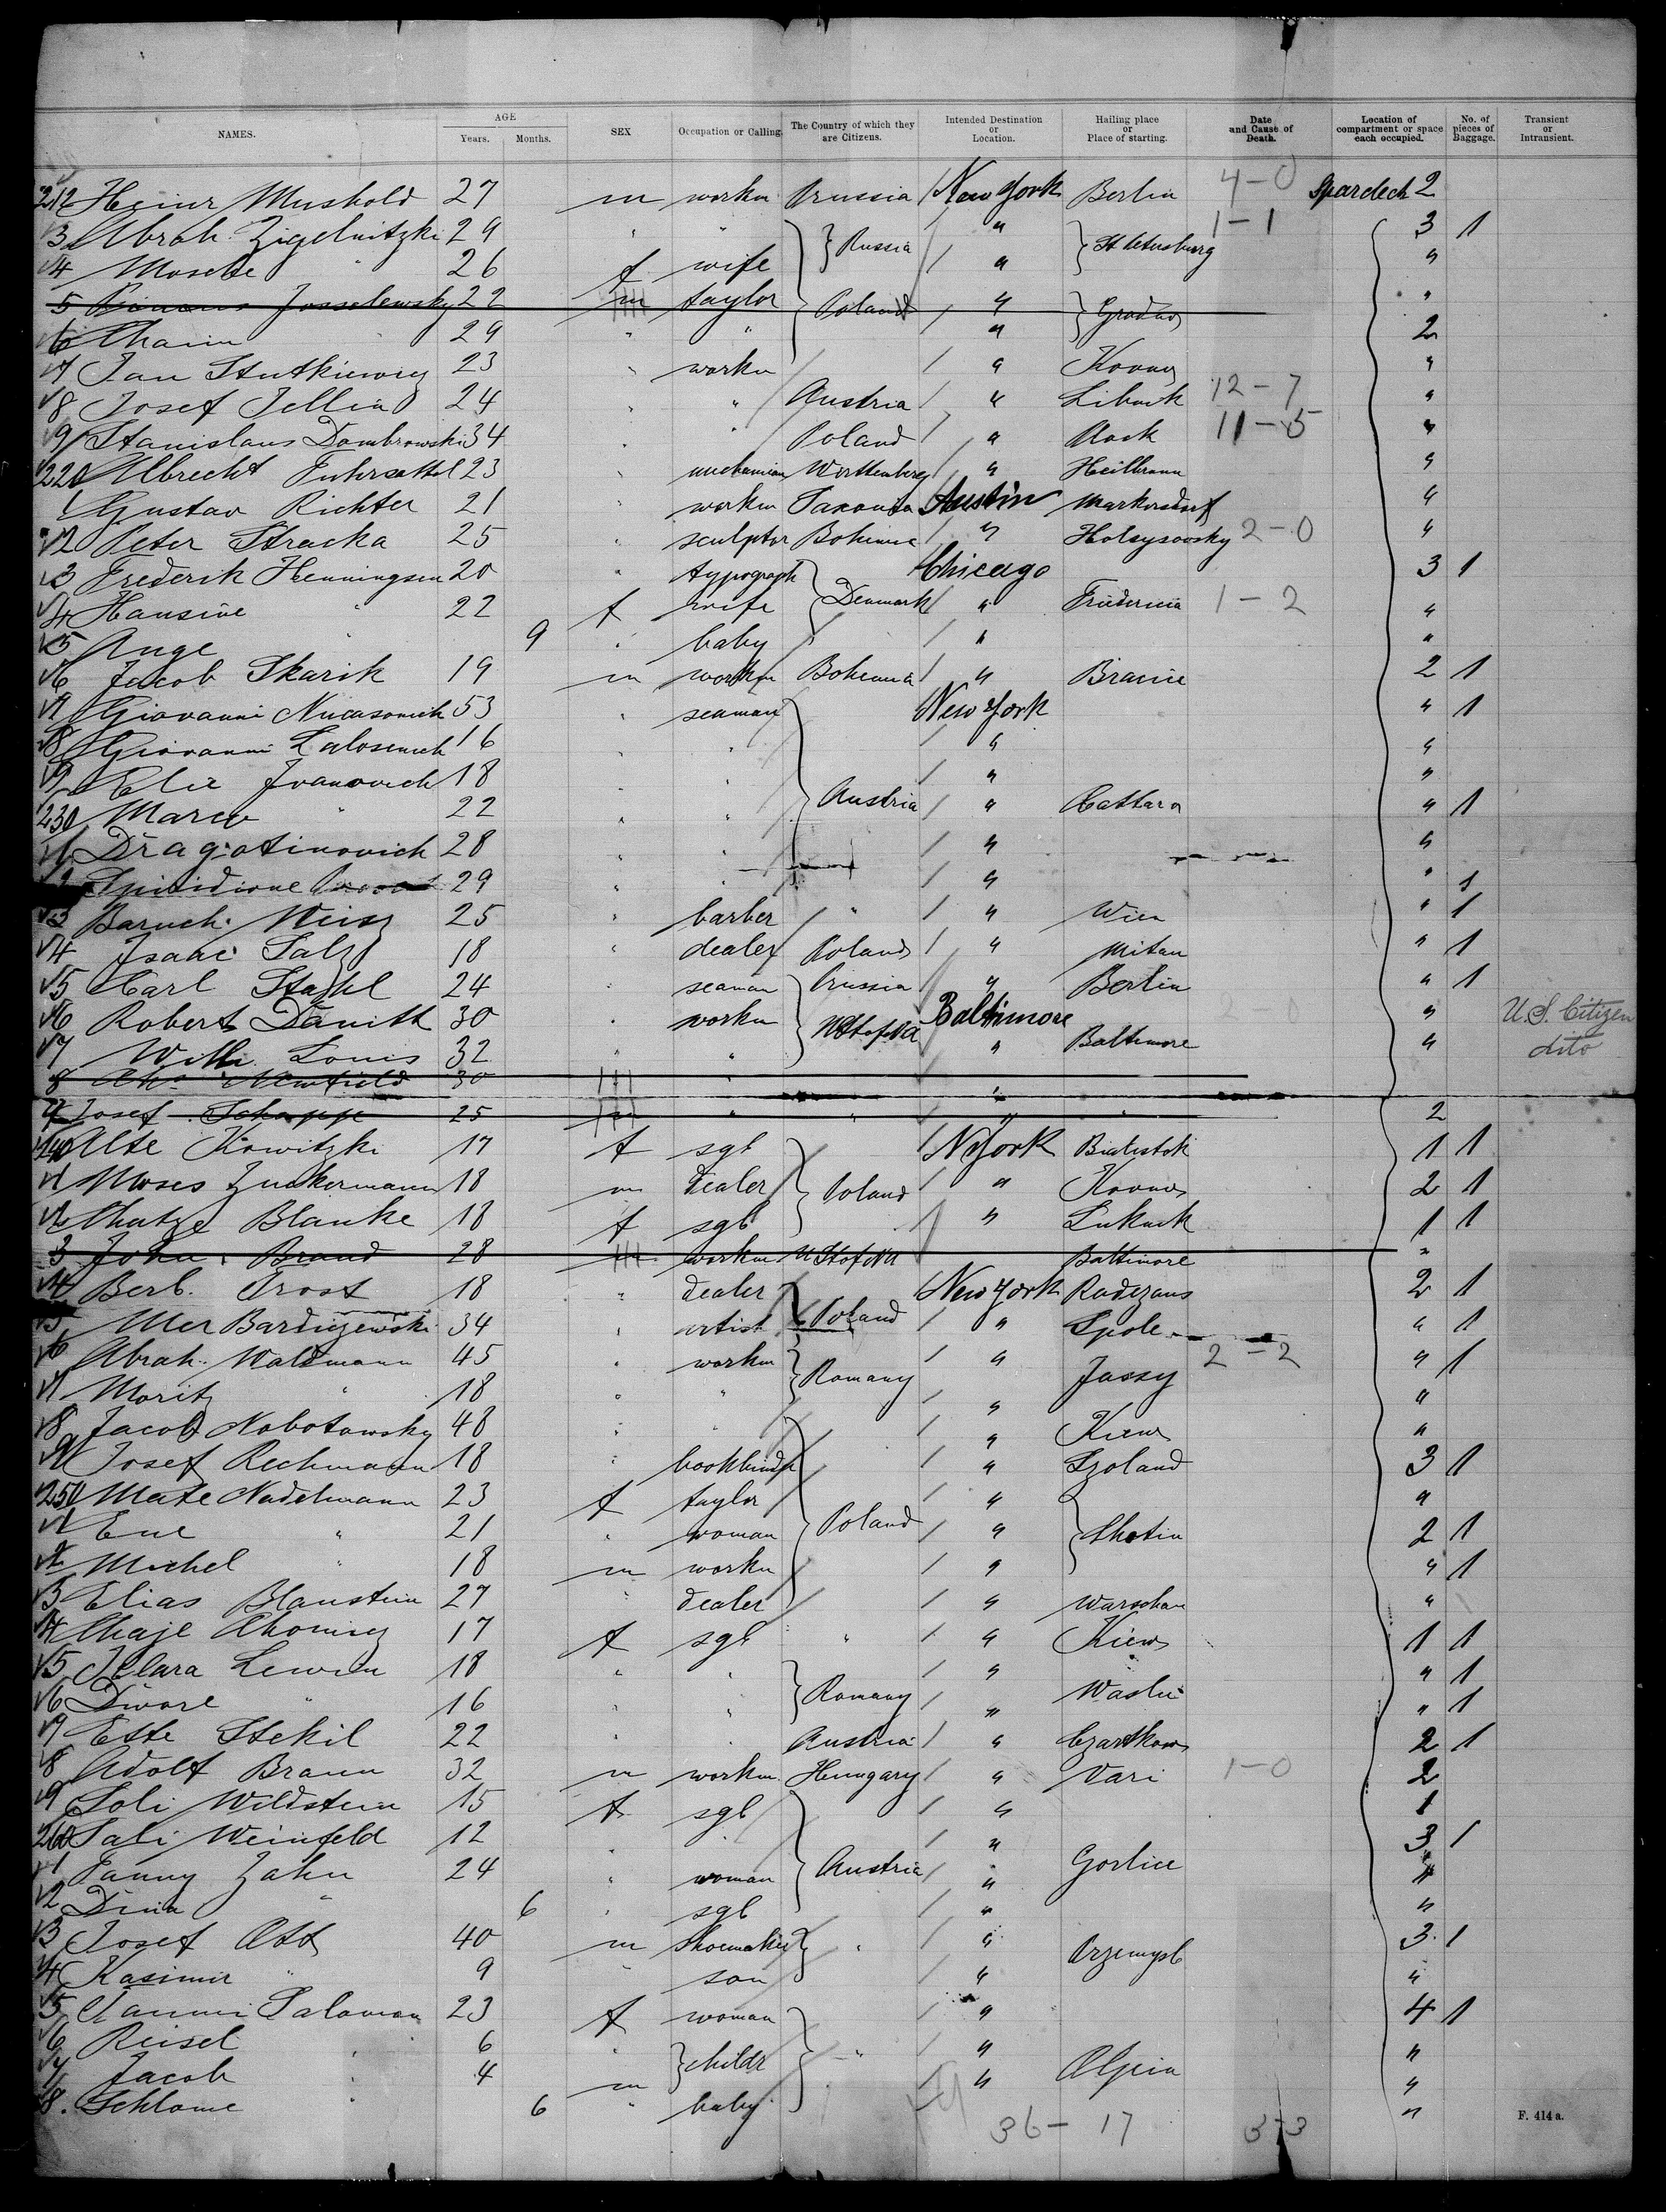 NAMES. AGE Years. Months. SEX Occupation or Calling. The Country of which they are Citizens. Intended Destination or Location. Hailing place or Place of starting. Date and Cause of Death. Location of compartment or space each occupied. No. of pieces of Baggage. Transient or Intransient.
212 Heinr Mushold 27 m workm Prussia New York Berlin 4-0 Spardeck 2
3 Abrah. Zigelnitzki 29 " " Russia " St Petersburg 1-1 3 1
4 Mosche " 26 f wife " "
5 Josselewsky 22 m taylor Poland " Grodno "
6 Chaim 29 " " " 2
7 Jan Stutkiewicz 23 " workm " Kovno "
8 Josef Jellin 24 " " Austria " 12-7 "
9 Stanislaus Dombrowski 34 " Poland " 11-5 "
220 Albrecht 23 " Württemberg " Heilbronn "
1 Gustav Richter 21 " workm Saxonia Austin Markersdorf "
2 Peter Stracka 25 " sculptor Bohemia " 2-0 "
3 Frederik Henningsen 20 " typograph Denmark Chicago 3 1
4 Hansine " 22 f wife " Fridericia 1-2 "
5 Auge " 9 " baby " "
6 Jacob Skarik 19 m workm Bohemia " 2 1
7 Giovanni 53 " seaman New York " 1
8 Giovanni 16 " " " "
9 Elie Ivanovich 18 " " "
230 Marco " 22 " " Austria " Cattaro " 1
1 Dragotinovich 28 " " " "
2 Spiridione 29 " " " " 1
3 Baruch Weisz 25 " barber " " Wien " 1
4 Isaac Salz 18 " dealer Poland " Mitau " 1
5 Carl Stahl 24 " seaman Prussia " Berlin " 1
6 Robert Danith 30 " workm U St of NA Baltimore 2-0 " U.S. Citizen
7 Willi Louis 32 " " " Baltimore " dito
8 Newfield 30 " "
9 Josef Schoppe 25 m " " " " 2
240 Alte Kowitzki 17 f sgl N York Bialistok 1 1
1 Moses Zuckermann 18 m dealer Poland " Kovno 2 1
2 Chatze Blanke 18 f sgl " 1 1
3 John Brand 28 workm U St of NA Baltimore "
4 Berl. Trost 18 " dealer New York 2 1
5 Mer Bardizewski 34 " artist Poland " Spole " 1
6 Abrah. Waldmann 45 " workm Romany " Jassy 2-2 " 1
7 Moritz " 18 " " " "
8 Jacob Nobotowsky 48 " " " Kiew "
9 Josef Rechmann 18 " bookbinder " 3 1
250 Mate Nadelmann 23 f taylor " "
1 Ene " 21 " woman Poland " 2 1
2 Michel " 18 m workm " " 1
3 Elias Blaustein 27 " dealer " Warschau "
4 Chaje 17 f sgl " " Kiew 1 1
5 Klara Lewin 18 " " " " 1
6 Diwore " 16 " " Romany " Waslui " 1
7 Ette Stekil 22 " " Austria " Czartkow 2 1
8 Adolf Braun 32 m workm Hungary " Vari 1-0 2
9 Soli Wildstein 15 f sgl " 1
260 Sali Weinfeld 12 " " " 3 1
1 Fanny Zahn 24 " woman Austria " Gorlice "
2 Dina " 6 " sgl " "
3 Josef Ott 40 m shoemaker " " Przemysl 3 1
4 Kasimir " 9 " son " "
5 Salomon 23 f woman " 4 1
6 Reisel 6 " childr " " "
7 Jacob 4 m " "
8. Schlome 6 " baby "
36 - 17 3-3
F. 414 a.